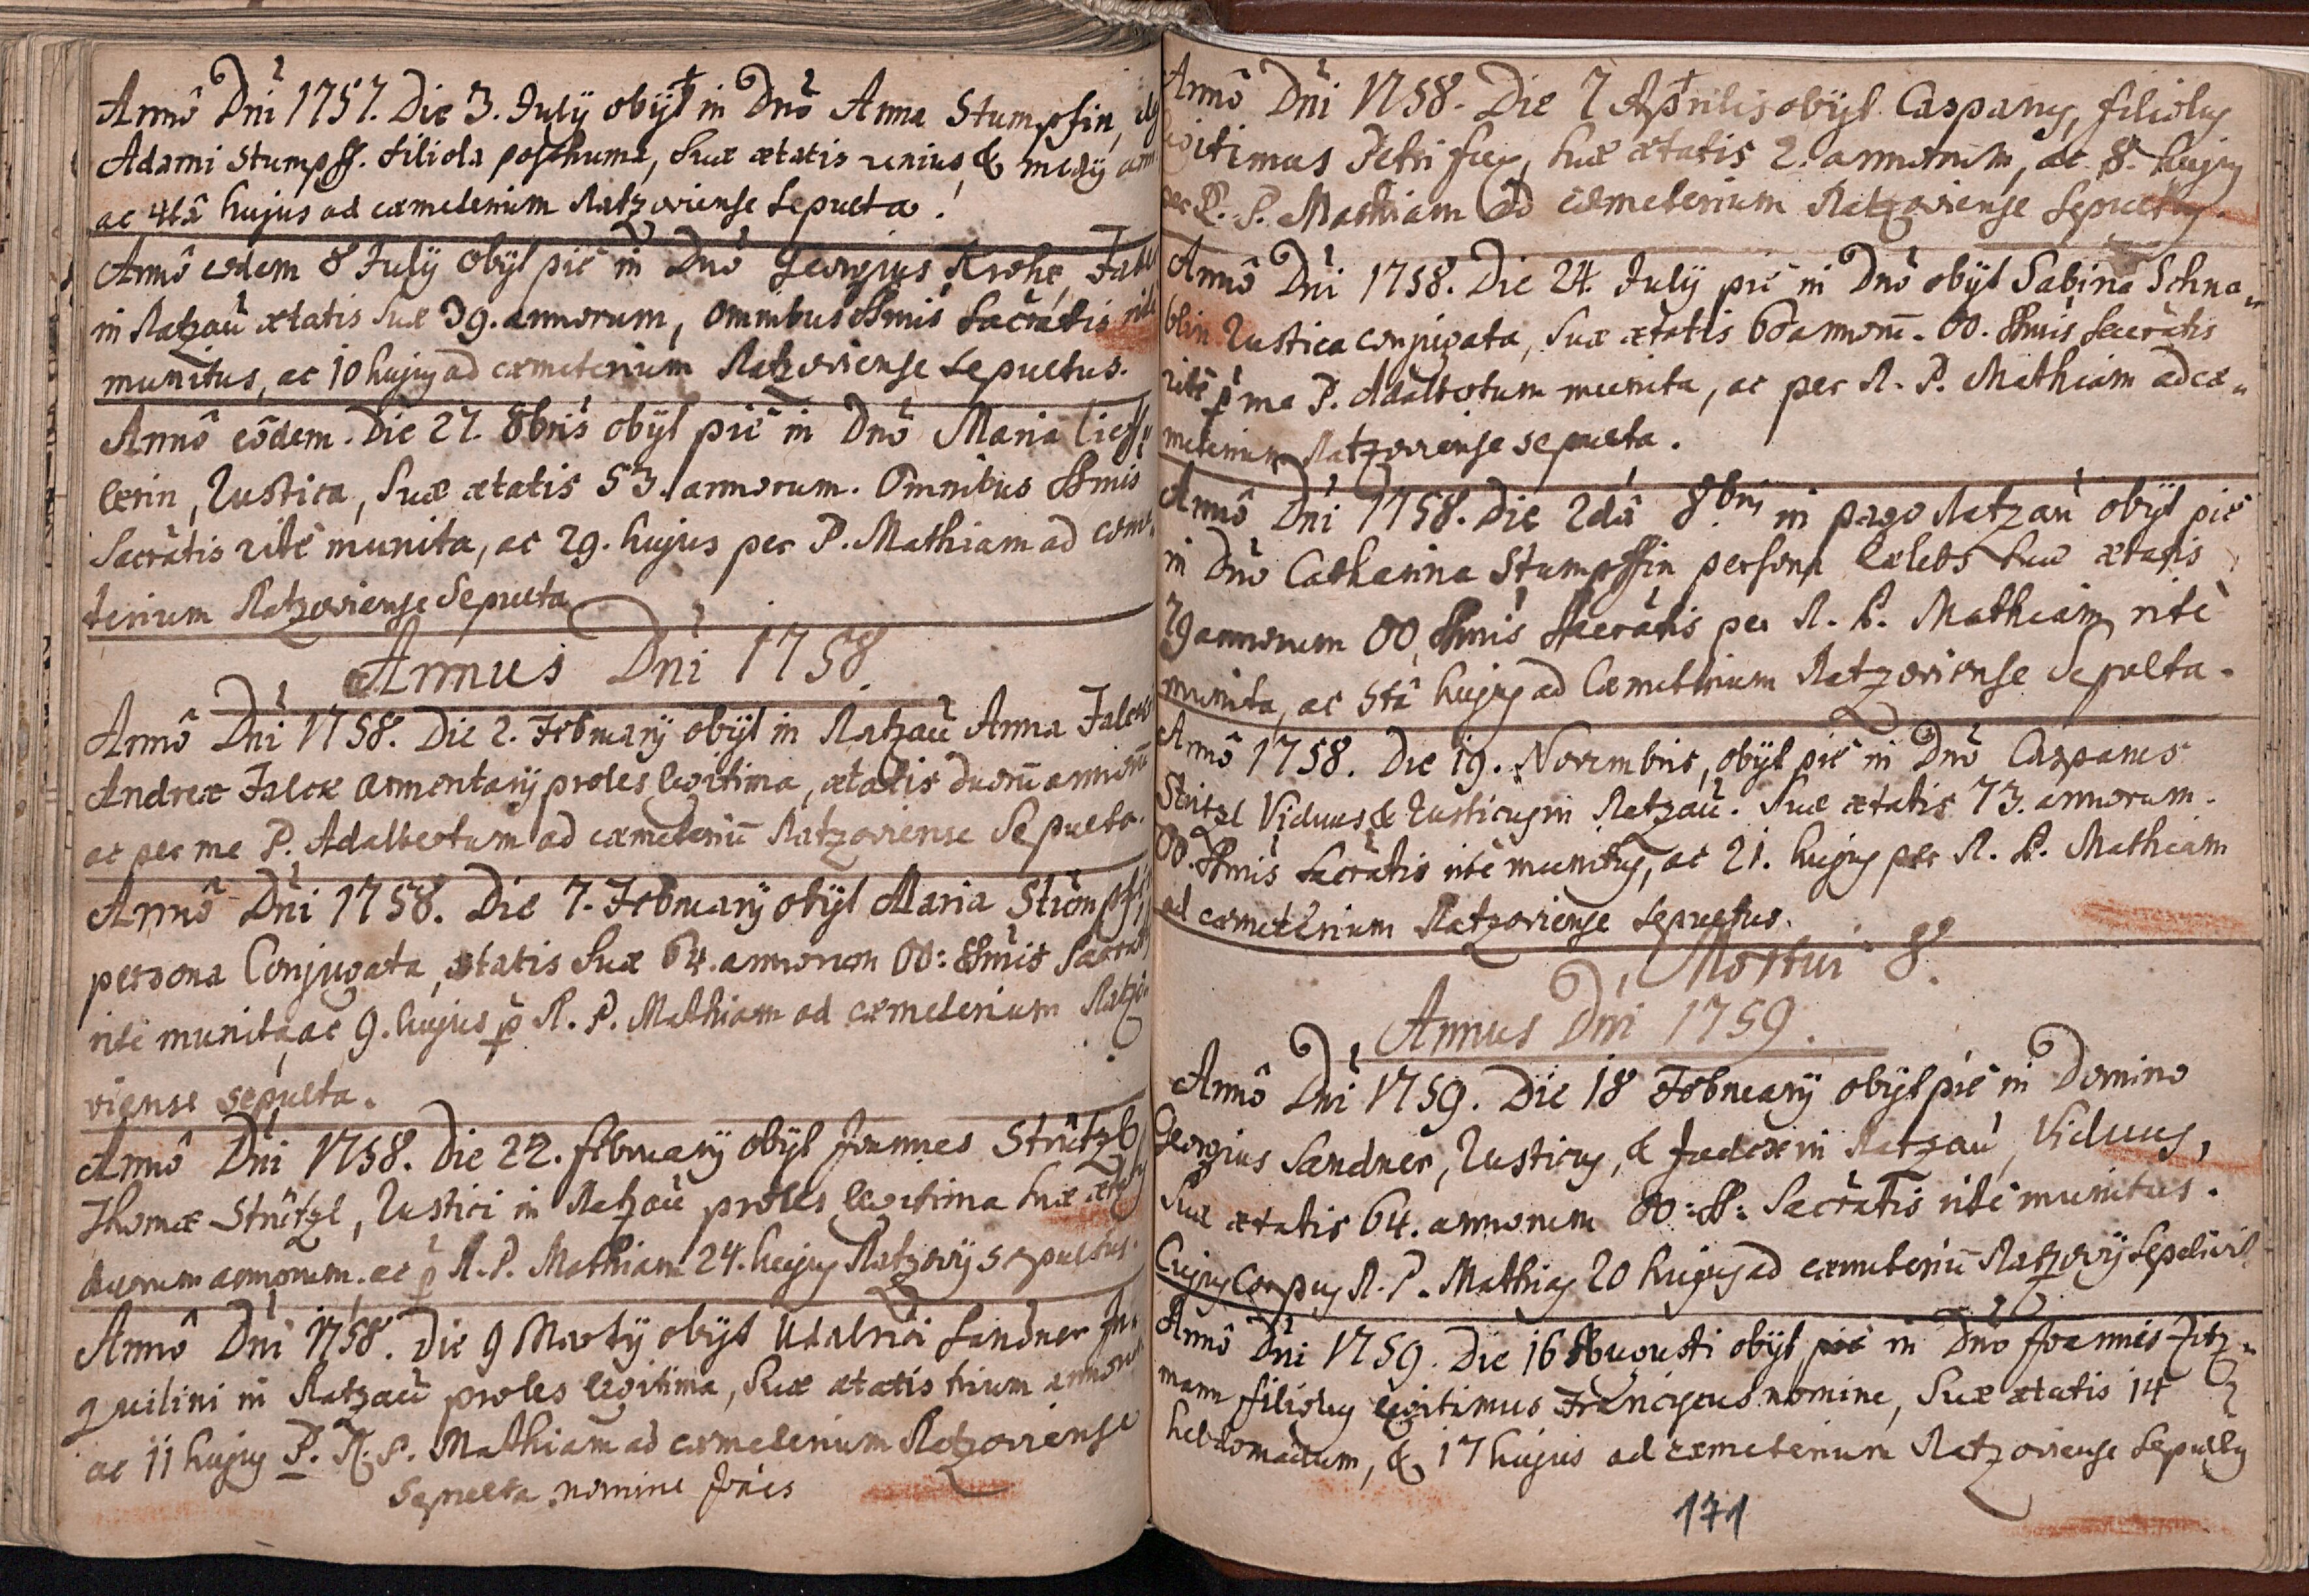 Annô Dni 1757. Die 3. July obÿt in Dnô Anna Stumpfin,
Adami Stumpff. filiola posthuma, Suæ ætatis unius, & medÿ
ac 4tâ hujus ad cæmeterium Ratzoviense Sepulta.
Annô eodem 8 July obÿt piè in Dnô Georgius Krohe,
in Ratzau ætatis Suæ 39. annorum, omnibus SSmis Sacratis
munitus, ac 10 hujus ad cæmeterium Ratzoviense Sepultus.
Annô eôdem. Die 27. 8bris obÿt piè in Dnô Maria
lerin, Rustica, Suæ ætatis 53. annorum. Omnibus SSmis
Sacrâtis ritè munita, ac 29. hujus per P. Mathiam ad cæme
terium Ratzoviense Sepulta
Annus Dni 1758.
Annô Dni 1758. Die 2. February obÿt in Ratzau Anna
Andreæ Falck armentarÿ proles legitima, ætatis duorū annorū
ac per me P. Adalbertum ad cæmeteriū Ratzoviense Sepulta.
Annô Dni 1758. Die 7. February obÿt Maria
persona Conjugata, ætatis Suæ 64. annorum OO: SSmis
ritè munita, ac 9. hujus p̄ R. P. Mathiam ad cæmeterium Ratzo
viense sepulta.
Annô Dni 1758. Die 22. february obÿt Joannes Strützl
Thomæ Strützl, Rustici in Ratzau proles legitima Suæ
duorum annorum. ac p̄ R. P. Mathiam 24. hujus Ratzovÿ sepultus.
Annô Dni 1758. Die 9 Martÿ obÿt Udalrici Sandner In-
quilini in Ratzau proles legitima, Suæ ætatis trium annorum
ac 11 hujus P. R. P. Mathiam ad cæmeterium Ratzoviense
Sepulta. nomine Joñes
Annô Dni 1758. Die 7 Aprilis obÿt Casparus, filiolus
legitimus Petri, Suæ ætatis 2. annorum, ac 8. hujus
per R. P. Mathiam ad cæmeterium Ratzoviense Sepultus.
Annô Dni 1758. Die 24. July piè in Dnô obÿt Sabina Schna-
blin Rustica conjugata, Suæ ætatis 60 annorū. OO. SSmis Sacrâtis
ritè p̄ me P. Adalbertum munita, ac per R. P. Mathiam ad cæ-
meterium Ratzoviense sepulta.
Annô Dni 1758. Die 2dâ 8bris in pago Ratzau obÿt piè
in Dnô Catharina Stumpffin persona cælebs Suæ ætatis
79 annorum OO, SSmis Sacratis per R. P. Mathiam ritè
munita, ac 5tâ hujus ad Cæmeterium Ratzoviense Sepulta.
Annô 1758. Die 19. Novembris, obÿt piè in Dnô Casparus
Stritzl Viduus & Rusticus in Ratzau. Suæ ætatis 73. annorum.
OO. SSmis Sacrâtis ritè munitus, ac 21. hujus per R. P. Mathiam
ad cæmeterium Ratzoviense Sepultus.
Mortui 8.
Annus Dni 1759.
Annô Dni 1759. Die 18 February obÿt piè in Domino
Georgius Sandner, Rusticus, & Judex in Ratzau, Viduus,
Suæ ætatis 64. annorum OO: SS: Sacratis ritè munitus.
Cujus Corpus R. P. Mathias 20 hujus ad cæmeteriū Ratzovÿ Sepelivit
Annô Dni 1759. Die 16 Augusti obÿt piè in Dnô Joannis Zitz-
mann filiolus legitimus Franciscus nomine, Suæ ætatis 14
hebdomadum, & 17 hujus ad cæmeterium Ratzoviense Sepultus
171